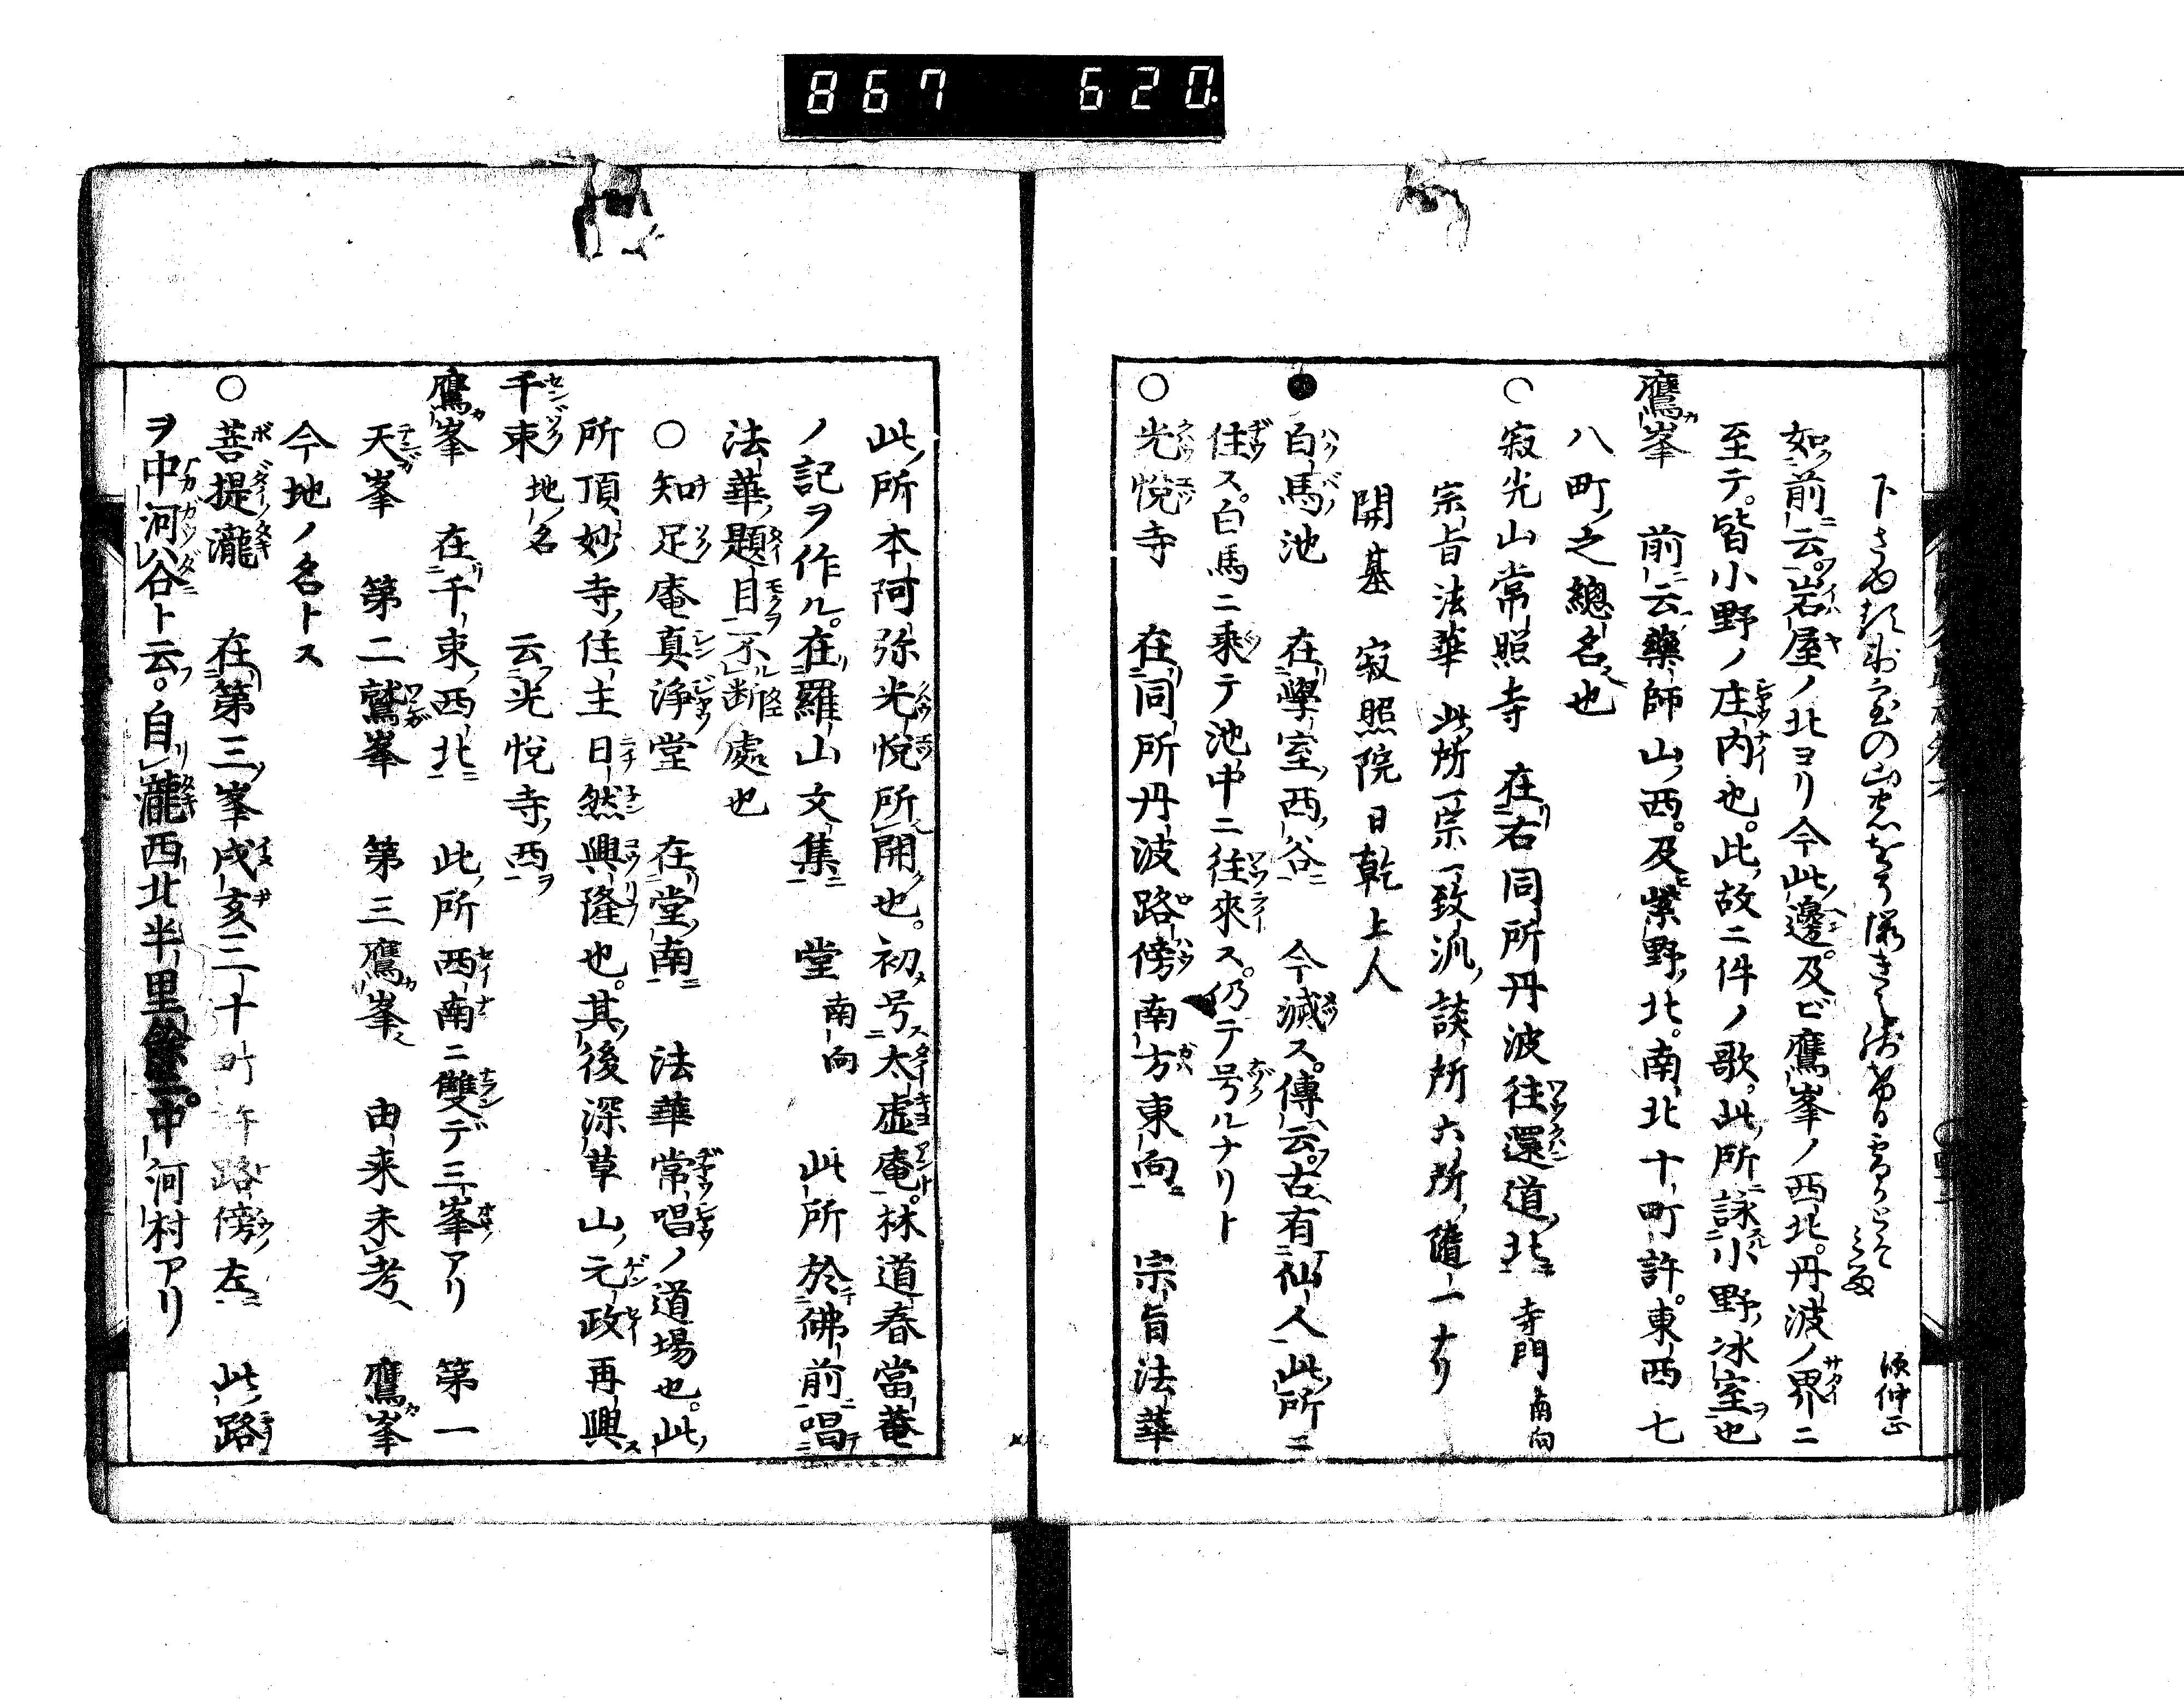 867 620
如前云岩屋ノ北ヨリ今此邊及ビ鷹峯ノ西北丹波ノ界ニ
至テ皆小野ノ庄内也此故ニ件ノ歌此所詠小野氷室也
鷹峯 前云藥師山西及紫野北南北十町許東西七
八町之總名也
○寂光山常照寺 在右同所丹波往還道北 寺門南向
宗旨法華 此所一宗一致派談所六所隨一ナリ
開基 寂照院日乾上人
●白馬池 在學室西谷 今滅ス傳云古有仙人此所ニ
住ス白馬ニ乗テ池中ニ往來ス仍テ号ルナリト
○光悦寺 在同所丹波路傍南方東向 宗旨法華
此所本阿弥光悦所開也初号太虚庵林道春當菴
ノ記ヲ作ル在羅山文集 堂南向 此所於佛前唱
法華題目不断處也
○知足庵真浄堂 在堂南 法華常唱ノ道場也此
所頂妙寺住主日然興隆也其後深草山元政再興
千束地名 云光悦寺西
鷹峯 在千束西北 此所西南ニ雙デ三峯アリ 第一
天峯 第二鷲峯 第三鷹峯 由来未考 鷹峯
今地ノ名トス
○菩提瀧 在第三峯戌亥三十町許路傍左 此路
ヲ中河谷ト云自瀧西北半里餘中河村アリ